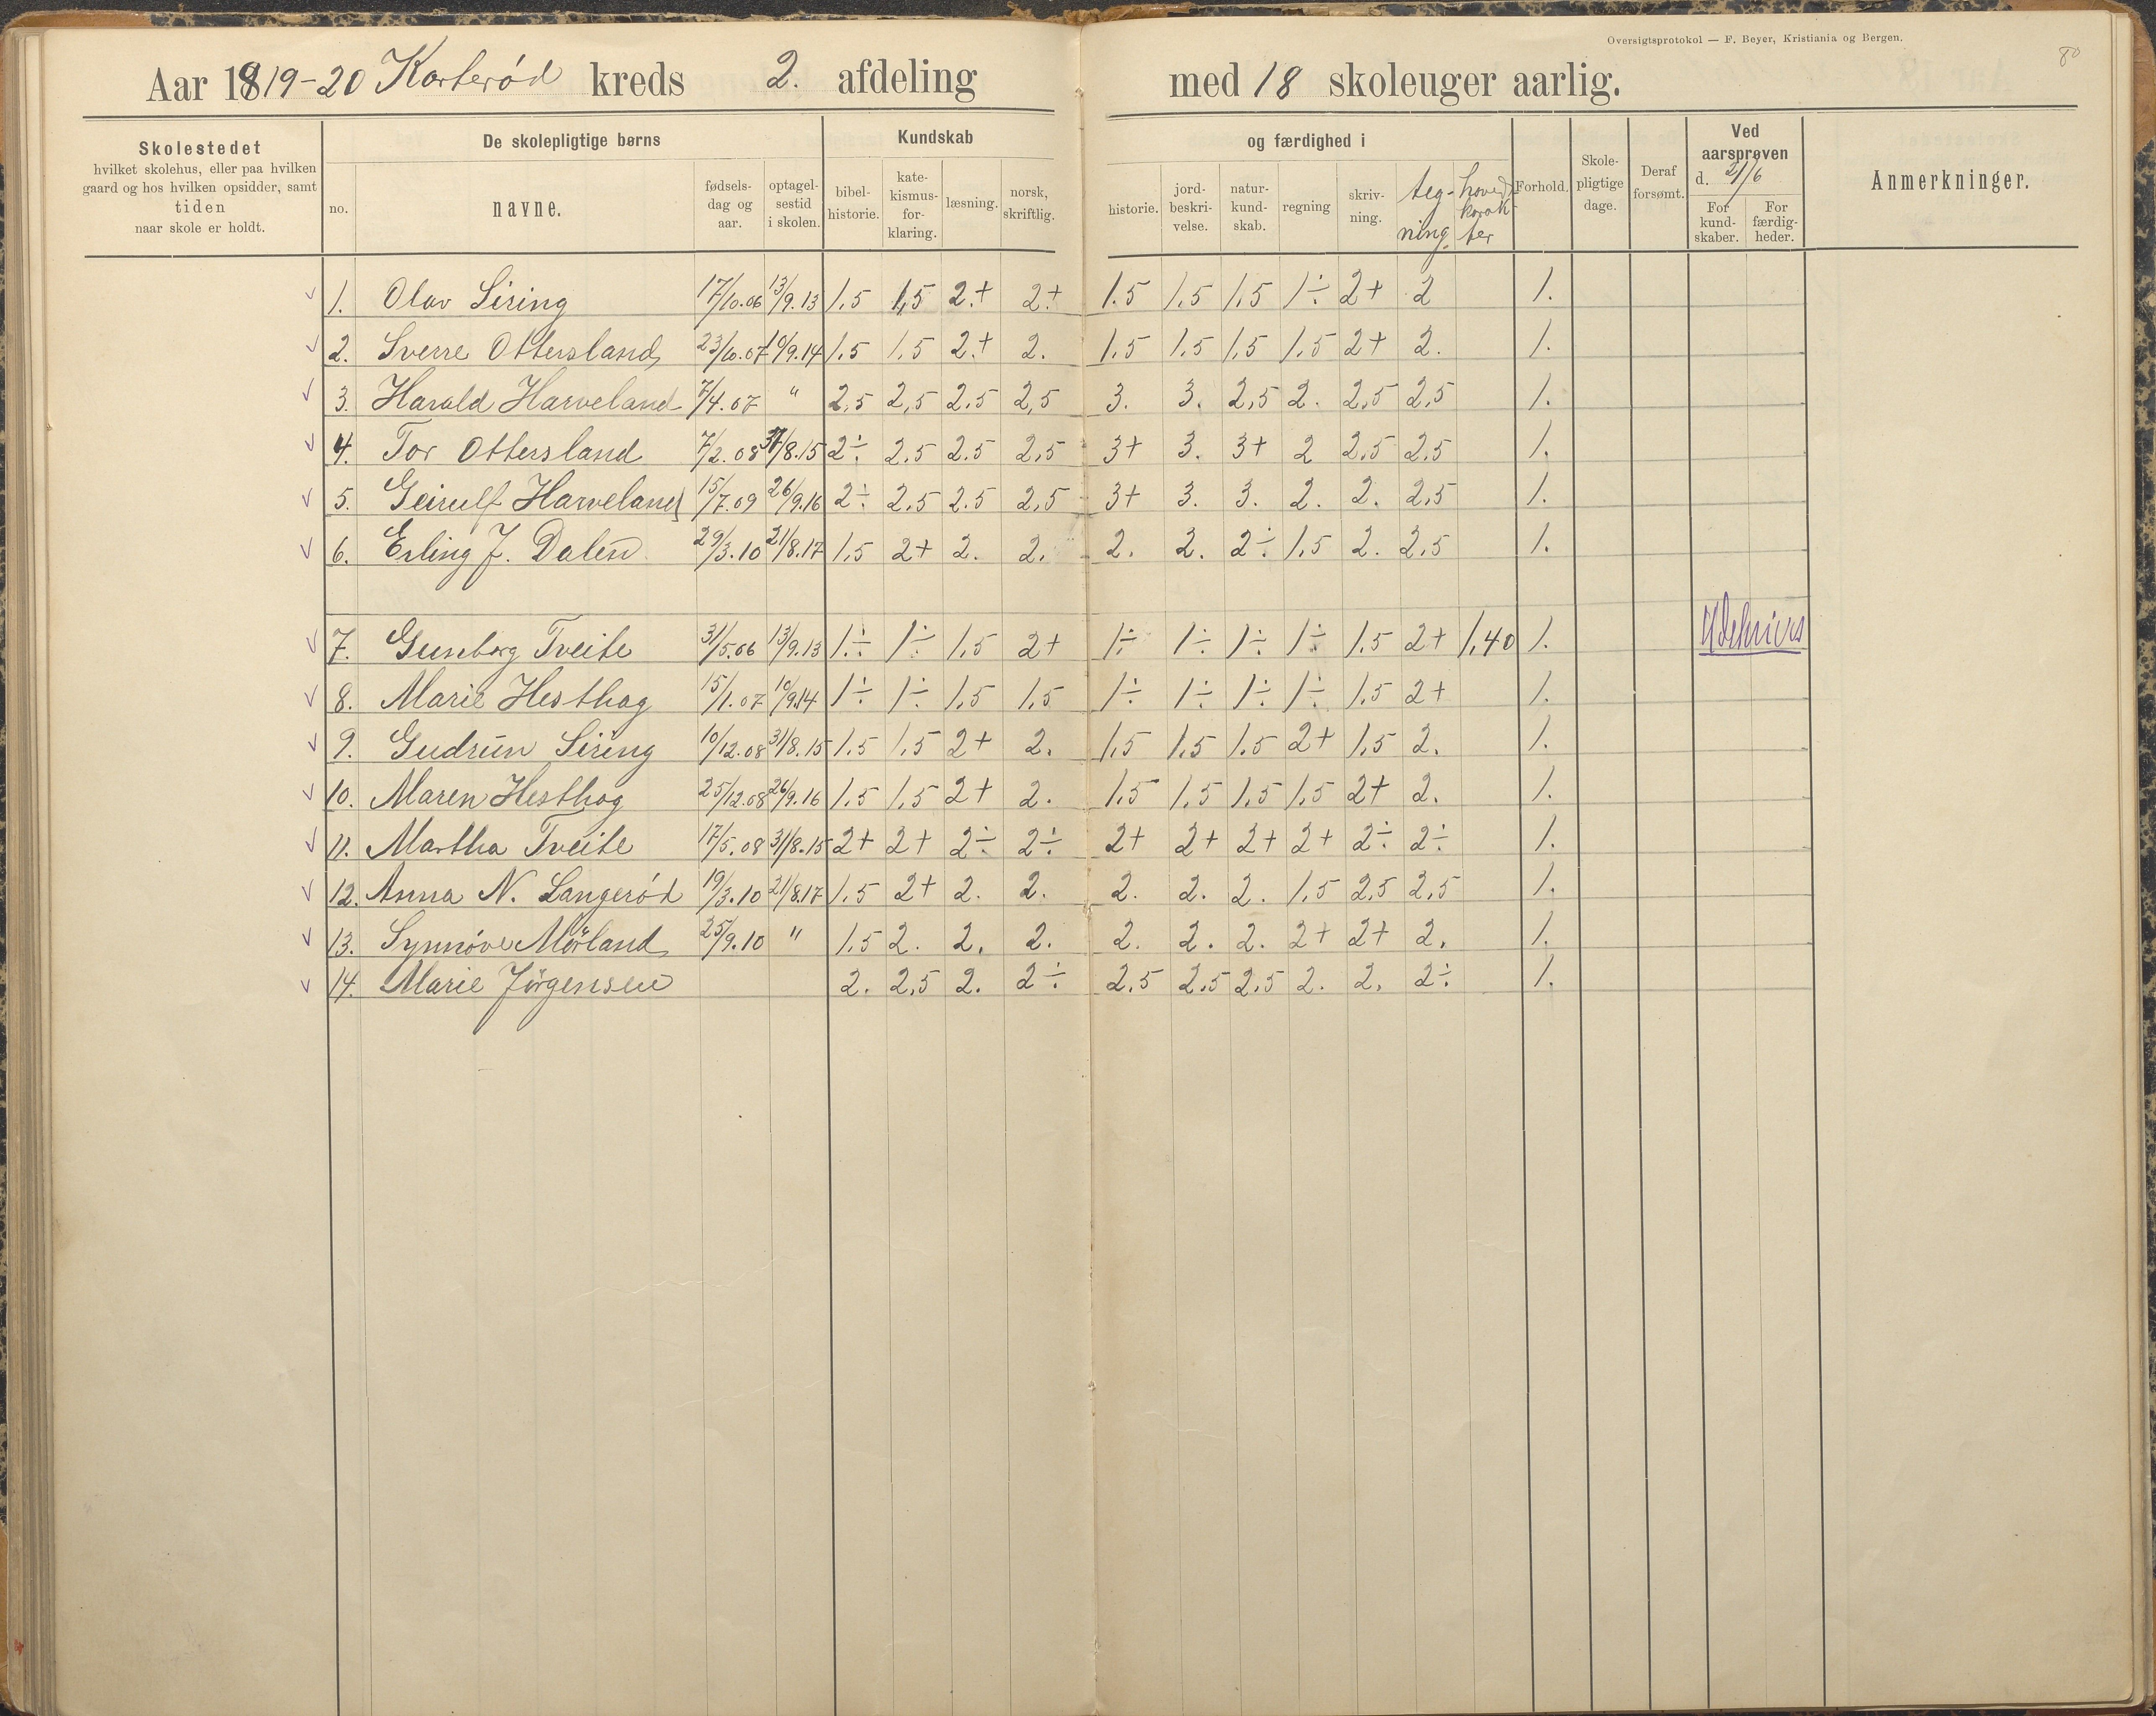 Oversigtsprotokol — F. Beyer, Kristiania og Bergen.
80
Aar 1819-20 Karterød kreds 2. afdeling med 18 skoleuger aarlig.
Skolestedet
hvilket skolehus, eller paa hvilken
gaard og hos hvilken opsidder, samt
tiden
naar skole er holdt.
De skolepligtige børns
no.
navne.
fødsels-
dag og
aar.
optagel-
sestid
i skolen.
Kundskab
bibel-
historie.
kate-
kismus-
for-
klaring.
læsning.
norsk,
skriftlig.
og færdighed i
historie.
jord-
beskri-
velse.
natur-
kund-
skab.
regning
skriv-
ning.
teg-
ning.
hoved
karak
ter
Forhold.
Skole-
pligtige
dage.
Deraf
forsømt.
Ved
aarsprøven
d. 2/6
For
kund-
skaber.
For
færdig-
heder.
Anmerkninger.
1. Olav Siring 17/10.06 13/9.13 1.5 1,5 2.+ 2+ 1.5 1.5 1.5 1÷ 2+ 2 1.
2. Sverre Ottersland 23/10.07 10/9.14 1.5 1.5 2.+ 2. 1.5 1.5 1.5 1.5 2+ 2. 1.
3. Harald Harveland 7/4.07 " 2.5 2,5 2.5 2,5 3. 3. 2,5 2. 2.5 2,5 1.
4. Tor Ottersland 7/2.08 31/8.15 2÷ 2.5 2.5 2,5 3+ 3. 3+ 2 2.5 2,5 1.
5. Geirulf Harveland 15/7.09 26/9.16 2÷ 2.5 2.5 2,5 3+ 3. 3. 2. 2. 2,5 1.
6. Erling J. Dalen 29/3.10 21/8.17 1.5 2+ 2. 2. 2. 2. 2÷ 1.5 2. 2.5 1.
7. Gunborg Tveite 31/5.06 13/9.13 1÷ 1÷ 1.5 2+ 1÷ 1÷ 1÷ 1÷ 1.5 2+ 1,40 1.
8. Marie Hesthag 15/1.07 10/9.14 1÷ 1÷ 1.5 1.5 1÷ 1÷ 1÷ 1÷ 1.5 2+ 1.
9. Gudrun Siring 10/12.08 31/8.15 1.5 1.5 2+ 2. 1.5 1.5 1.5 2+ 1.5 2. 1.
10. Maren Hesthag 25/12.08 26/9.16 1.5 1.5 2+ 2. 1.5 1.5 1.5 1.5 2+ 2. 1.
11. Martha Tveite 17/5.08 31/8.15 2+ 2+ 2÷ 2÷ 2+ 2+ 2+ 2+ 2÷ 2÷ 1.
12. Anna N. Langerød 19/3.10 21/8.17 1.5 2+ 2. 2. 2. 2. 2. 1.5 2.5 2,5 1.
13. Synnøve Mörland 25/9.10 " 1.5 2. 2. 2. 2. 2. 2. 2+ 2+ 2. 1.
14. Marie Jörgensen 2. 2,5 2. 2÷ 2.5 2.5 2.5 2. 2. 2÷ 1.